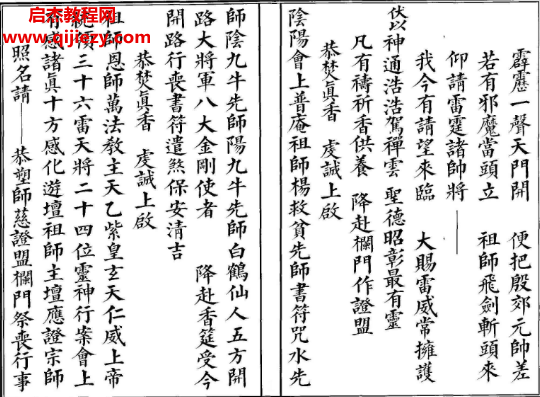 启杰教育教材网
www.qijiejy.com
霹靂一聲天門開　便把殷郊元帥差
若有邪魔當頭立　祖師飛劍斬頭來
仰請雷霆諸師將——
我今有請望來臨　大賜雷威常擁護
伏以神通浩浩駕禪雲　聖德昭彰最有靈
凡有禱祈香供養　降赴欄門作證盟
恭焚真香　虔誠上啟
陰陽會上普庵祖師楊救貧先師書符咒水先
師陰九牛先師陽九牛先師白鶴仙人五方開
路大將軍八大金剛使者　降赴香筵受今
開路行喪書符遣煞保安清吉
恭焚眞香　虔誠上啟
祖師恩師萬法教主天乙紫皇玄天仁威上帝
統領三十六雷天將二十四位靈神行案會上
有感諸眞十方感化遊壇祖師主壇應證宗師
照名請——恭望師慈證盟欄門祭喪行事